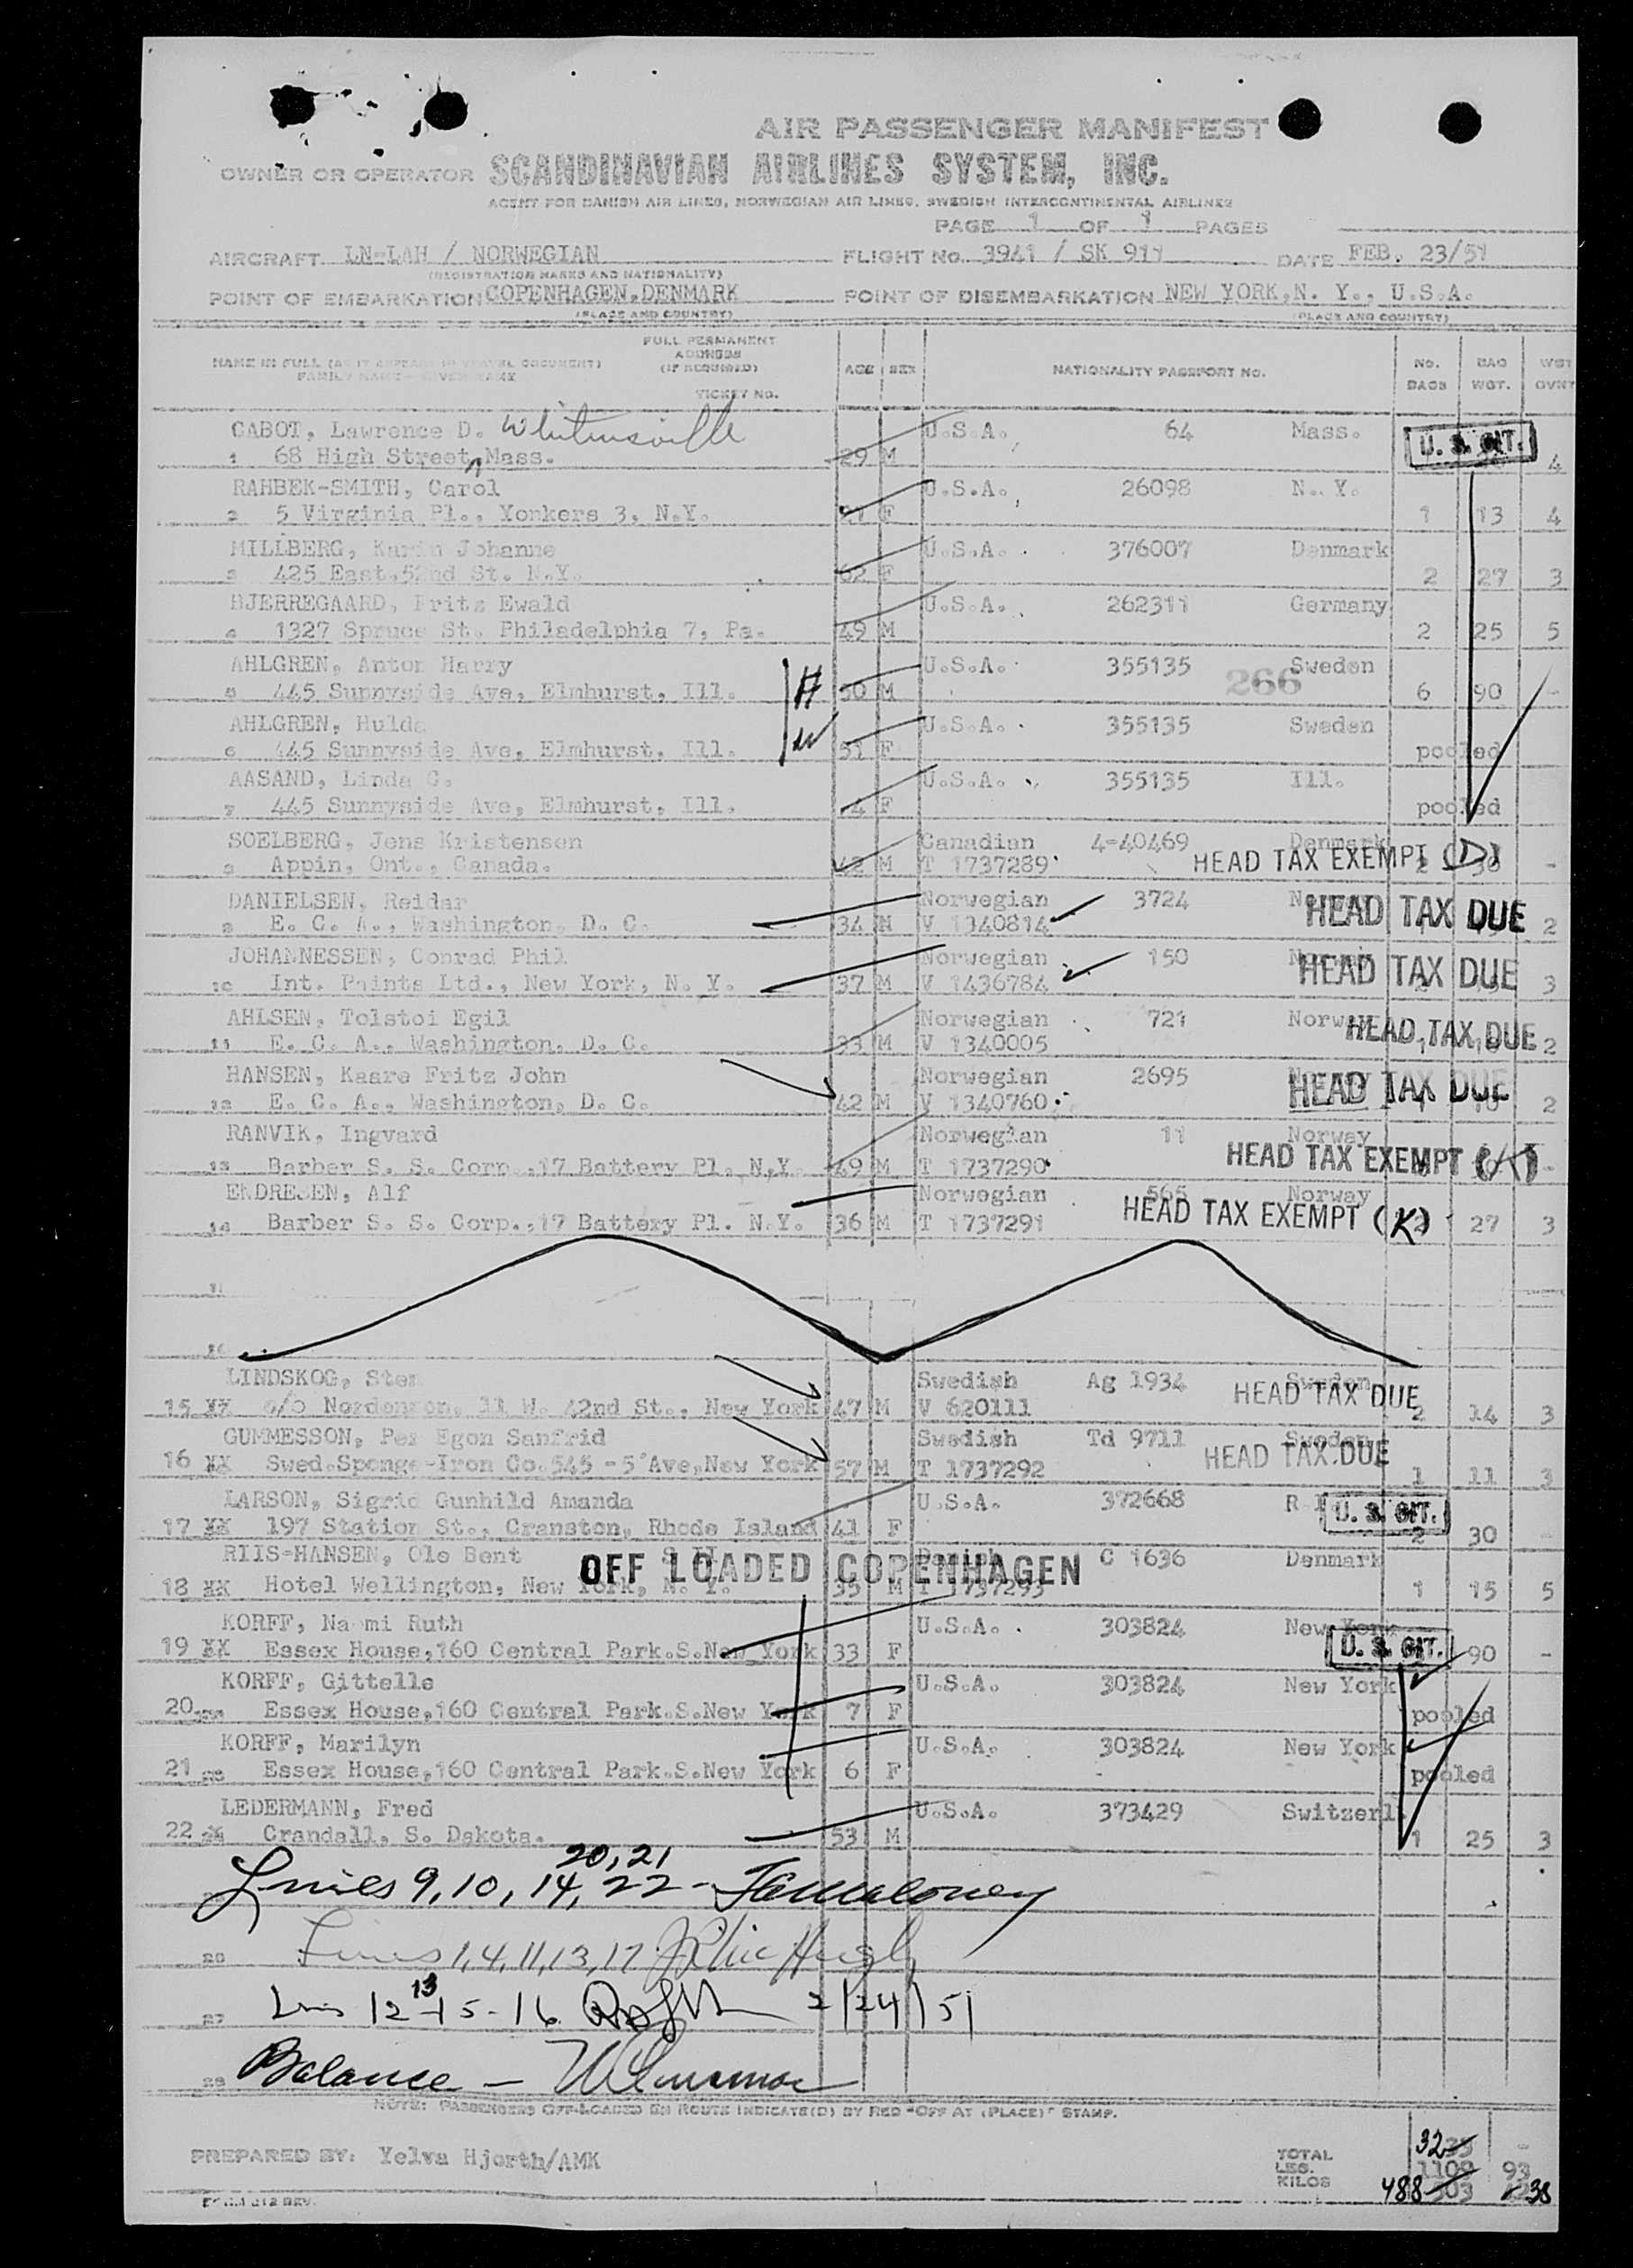 AIR PASSENGER MANIFEST
OWNER OR OPERATOR SCANDINAVIAN AIRLINES SYSTEM, INC.
AGENT FOR DANISH AIR LINES, NORWEGIAN AIR LINES, SWEDISH INTERCONTINENTAL AIRLINES
PAGE 1 OF 1 PAGES
AIRCRAFT LN-LAH / NORWEGIAN FLIGHT No. 3941 / SK 911 DATE FEB. 23/51
(REGISTRATION MARKS AND NATIONALITY)
POINT OF EMBARKATION COPENHAGEN, DENMARK POINT OF DISEMBARKATION NEW YORK, N. Y., U.S.A.
(PLACE AND COUNTRY) (PLACE AND COUNTRY)
FULL PERMANENT
ADDRESS
NAME IN FULL (AS IT APPEARS IN TRAVEL DOCUMENT) (IF REQUIRED) AGE SEX NATIONALITY PASSPORT NO. NO. BAG WGT
FAMILY NAME—GIVEN NAME BAGS WGT. OVNT
TICKET NO.
CABOT, Lawrence D. Whitinsville U.S.A. 64 Mass. U. S. CIT.
1 68 High Street, Mass. 29 M 4
RAHBEK-SMITH, Carol U.S.A. 26098 N. Y.
2 5 Virginia Pl., Yonkers 3, N.Y. F 1 13 4
MILLBERG, Karin Johanne U.S.A. 376007 Denmark
3 425 East 52nd St. N.Y. 62 F 2 27 3
BJERREGAARD, Fritz Ewald U.S.A. 262311 Germany
4 1327 Spruce St. Philadelphia 7, Pa. 49 M 2 25 5
AHLGREN, Anton Harry H U.S.A. 355135 Sweden
5 445 Sunnyside Ave, Elmhurst, Ill. 50 M 266 6 90 -
AHLGREN, Hulda W U.S.A. 355135 Sweden
6 445 Sunnyside Ave, Elmhurst, Ill. 51 F pooled
AASAND, Linda G. U.S.A. 355135 Ill.
7 445 Sunnyside Ave, Elmhurst, Ill. 4 F pooled
SOELBERG, Jens Kristensen Canadian 4-40469 Denmark
8 Appin, Ont., Canada. 42 M T 1737289 HEAD TAX EXEMPT (D) 2 30 -
DANIELSEN, Reidar Norwegian 3724 HEAD TAX DUE
9 E. C. A., Washington, D. C. 34 M V 1340814 2
JOHANNESSEN, Conrad Phil Norwegian 150 HEAD TAX DUE
10 Int. Paints Ltd., New York, N. Y. 37 M V 1436784 3
AHLSEN, Tolstoi Egil Norwegian 721 Norway HEAD TAX DUE
11 E. C. A., Washington, D. C. 33 M V 1340005 2
HANSEN, Kaare Fritz John Norwegian 2695 HEAD TAX DUE
12 E. C. A., Washington, D. C. 42 M V 1340760 2
RANVIK, Ingvard Norwegian 11 Norway
13 Barber S. S. Corp.,17 Battery Pl. N.Y. 49 M T 1737290 HEAD TAX EXEMPT (K) -
ENDRESEN, Alf Norwegian 565 Norway
14 Barber S. S. Corp.,17 Battery Pl. N.Y. 36 M T 1737291 HEAD TAX EXEMPT (K) 2 27 3
LINDSKOG, Sten Swedish Ag 1934 Sweden HEAD TAX DUE
15 XX c/o Nordenson, 11 W. 42nd St., New York 47 M V 620111 2 14 3
GUMMESSON, Per Egon Sanfrid Swedish Td 9711 Sweden HEAD TAX DUE
16 XX Swed.Sponge-Iron Co.545 - 5'Ave,New York 57 M T 1737292 1 11 3
LARSON, Sigrid Gunhild Amanda U.S.A. 372668 R.I. U. S. CIT.
17 XX 197 Station St., Cranston, Rhode Island 41 F 2 30 -
RIIS-HANSEN, Ole Bent OFF LOADED COPENHAGEN Danish C 1636 Denmark
18 XX Hotel Wellington, New York, N. Y. 35 M T 1737293 1 15 5
KORFF, Naomi Ruth U.S.A. 303824 New York U. S. CIT.
19 XX Essex House,160 Central Park.S.New York 33 F 90 -
KORFF, Gittelle U.S.A. 303824 New York
20 Essex House,160 Central Park.S.New York 7 F pooled
KORFF, Marilyn U.S.A. 303824 New York
21 Essex House,160 Central Park.S.New York 6 F pooled
LEDERMANN, Fred U.S.A. 373429 Switzerl.
22 Crandall, S. Dakota. 53 M 1 25 3
20, 21
Lines 9, 10, 14, 22 -
Lines 1, 4, 11, 13, 17
13
12 - 15 - 16 2/24/51
Balance -
NOTE: PASSENGERS OFF-LOADED EN ROUTE INDICATE(D) BY RED "OFF AT (PLACE)" STAMP.
PREPARED BY: Yelva Hjorth/AMK
TOTAL 32 35 -
LBS. 1109 93
KILOS 488 503 38
FORM 212 REV.